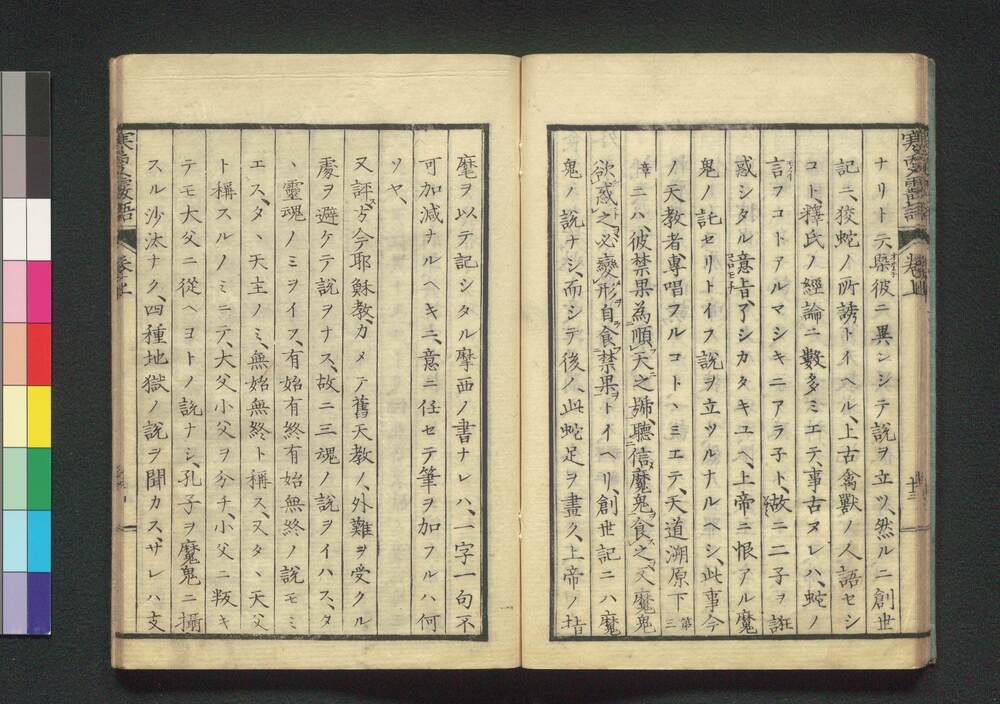 ナリト云槩彼ニ異ンシテ說ヲ立ツ、然ルニ創世
記ニ、狡蛇ノ所誘トイヘル、上古禽獸ノ人語セシ
コト、釋氏ノ經論ニ數多ミエテ、事古ヌレハ、蛇ノ
言フコトアルマシキニアラ子ト、故ニ二子ヲ誑
惑シタル意旨、了シカタキユヘ、上帝ニ恨アル魔
鬼ノ託セリトイフ說ヲ立ツルナルヘシ、此事今
ノ天教者、專唱フルコトヽミエテ、天道溯原下第三
章ニハ、彼禁果為順天之號、聽信魔鬼食之、又魔鬼
欲惑之必變形自食禁果トイヘリ、創世記ニハ魔
鬼ノ說ナシ、而シテ後ノ人此蛇足ヲ畫ク、上帝ノ旨
麾ヲ以テ記シタル摩西ノ書ナレハ、一字一句不
可加減ナルヘキニ、意ニ任セテ筆ヲ加フルハ何
ソヤ、
又評ス、方今耶穌教、カメテ舊天教ノ、外難ヲ受クル
處ヲ避ケテ說ヲナス、故ニ三魂ノ說ヲイハス、タ
ヽ靈魂ノミヲイフ、有始有終有始無終ノ說モミ
エス、タヽ天主ノミ、無始無終ト稱ス、又タヽ天父
ト稱スルノミニテ、大父小父ヲ分チ、小父ニ叛キ
テモ大父ニ從ヘヨトノ說ナシ、孔子ヲ魔鬼ニ攝
スル沙汰ナク、四種地獄ノ說ヲ聞カス、サレハ支